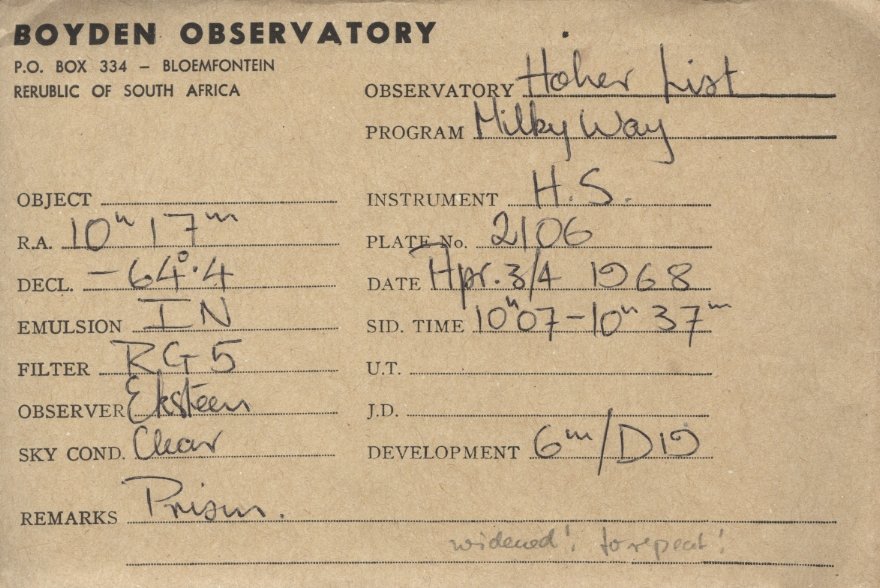 BOYDEN OBSERVATORY
P.O. BOX 334 – BLOEMFONTEIN
RERUBLIC OF SOUTH AFRICA
OBSERVATORY Hoher List
PROGRAM Milky Way
OBJECT
INSTRUMENT H.S.
R.A. 10ʰ 17ᵐ
PLATE No. 2106
DECL. –64°.4
DATE Apr. 3/4 1968
EMULSION IN
SID. TIME 10ʰ07–10ʰ 37ᵐ
FILTER RG 5
U.T.
OBSERVER Eksteen
J.D.
SKY COND. Clear
DEVELOPMENT 6ᵐ/D19
REMARKS Prism.
widened! to repeat!